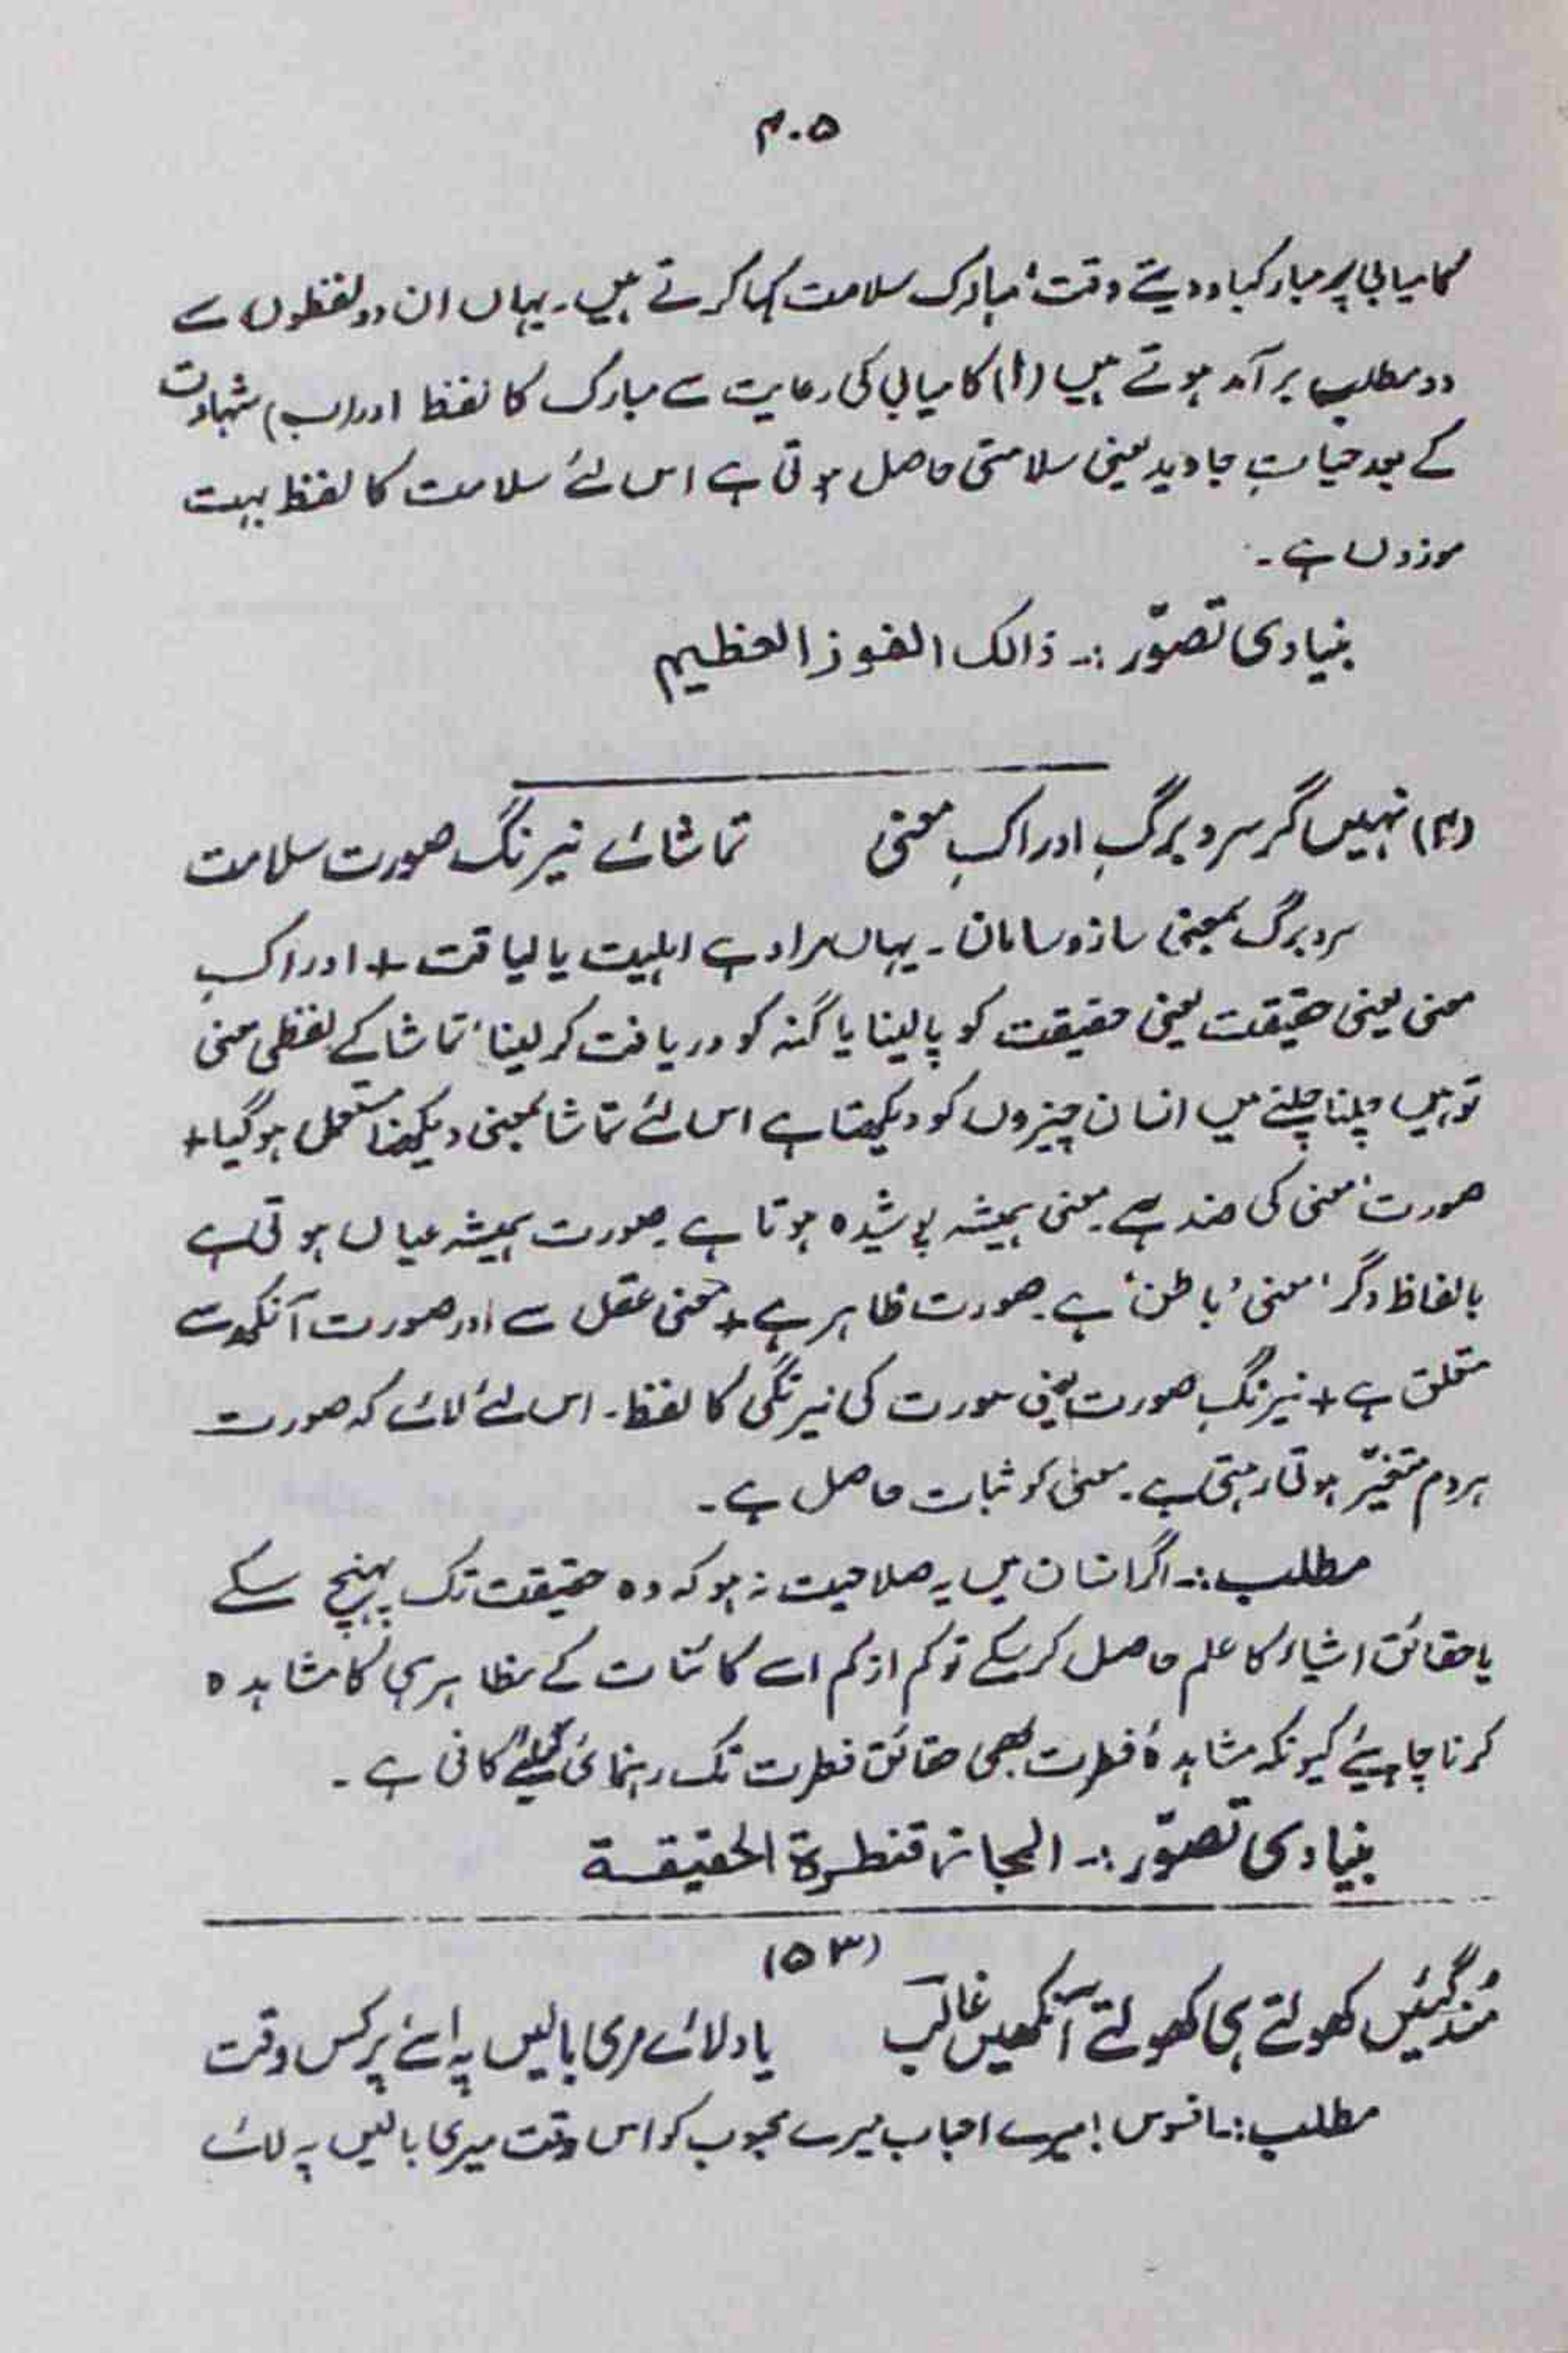 ۴۰۵
کامیابی پر مبارکباد دیتے وقت، مبارک سلامت کہا کرتے ہیں۔ یہاں ان دو لفظوں سے
دو مطلب برآمد ہوتے ہیں (ا) کامیابی کی رعایت سے مبارک کا لفظ اور (ب) شہادت
کے بعد حیاتِ جاوید یعنی سلامتی حاصل ہوتی ہے اس لئے سلامت کا لفظ بہت
موزوں ہے۔
بنیادی تصوّر :۔ ذالک الفوز العظیم
(۴) نہیں گر سر و برگِ ادراکِ معنی تماشائے نیرنگ صورت سلامت
سر و برگ بمعنی ساز و سامان۔ یہاں مراد ہے اہلیت یا لیاقت + ادراکِ
معنی یعنی حقیقت یعنی حقیقت کو پا لینا یا کُنہ کو دریافت کر لینا، تماشا کے لفظی معنی
تو ہیں چلنا چلنے میں انسان چیزوں کو دیکھتا ہے اس لئے تماشا بمعنی دیکھنا مستعمل ہو گیا +
صورت، معنی کی ضد ہے۔ معنی ہمیشہ پوشیدہ ہوتا ہے۔ صورت ہمیشہ عیاں ہوتی ہے
بالفاظ دگر، معنی، باطن، ہے۔ صورت ظاہر ہے + معنی عقل سے اور صورت آنکھ سے
متعلق ہے + نیرنگِ صورت یعنی صورت کی نیرنگی کا لفظ۔ اس لئے لائے کہ صورت
ہر دم متغیّر ہوتی رہتی ہے۔ معنی کو ثبات حاصل ہے۔
مطلب :۔ اگر انسان میں یہ صلاحیت نہ ہو کہ وہ حقیقت تک پہنچ سکے
یا حقائق اشیاء کا علم حاصل کر سکے تو کم از کم اسے کائنات کے مظاہر ہی کا مشاہدہ
کرنا چاہیئے کیونکہ مشاہدۂ فطرت بھی حقائق فطرت تک رہنمائی کیلئے کافی ہے۔
بنیادی تصوّر :۔ المجاز قنطرة الحقیقة
(۵۳)
مُند گئیں کھولتے ہی کھولتے آنکھیں غالب یار لائے مری بالیں پہ اسے پر کس وقت
مطلب :۔ افسوس! میرے احباب میرے محبوب کو اس وقت میری بالیں پہ لائے